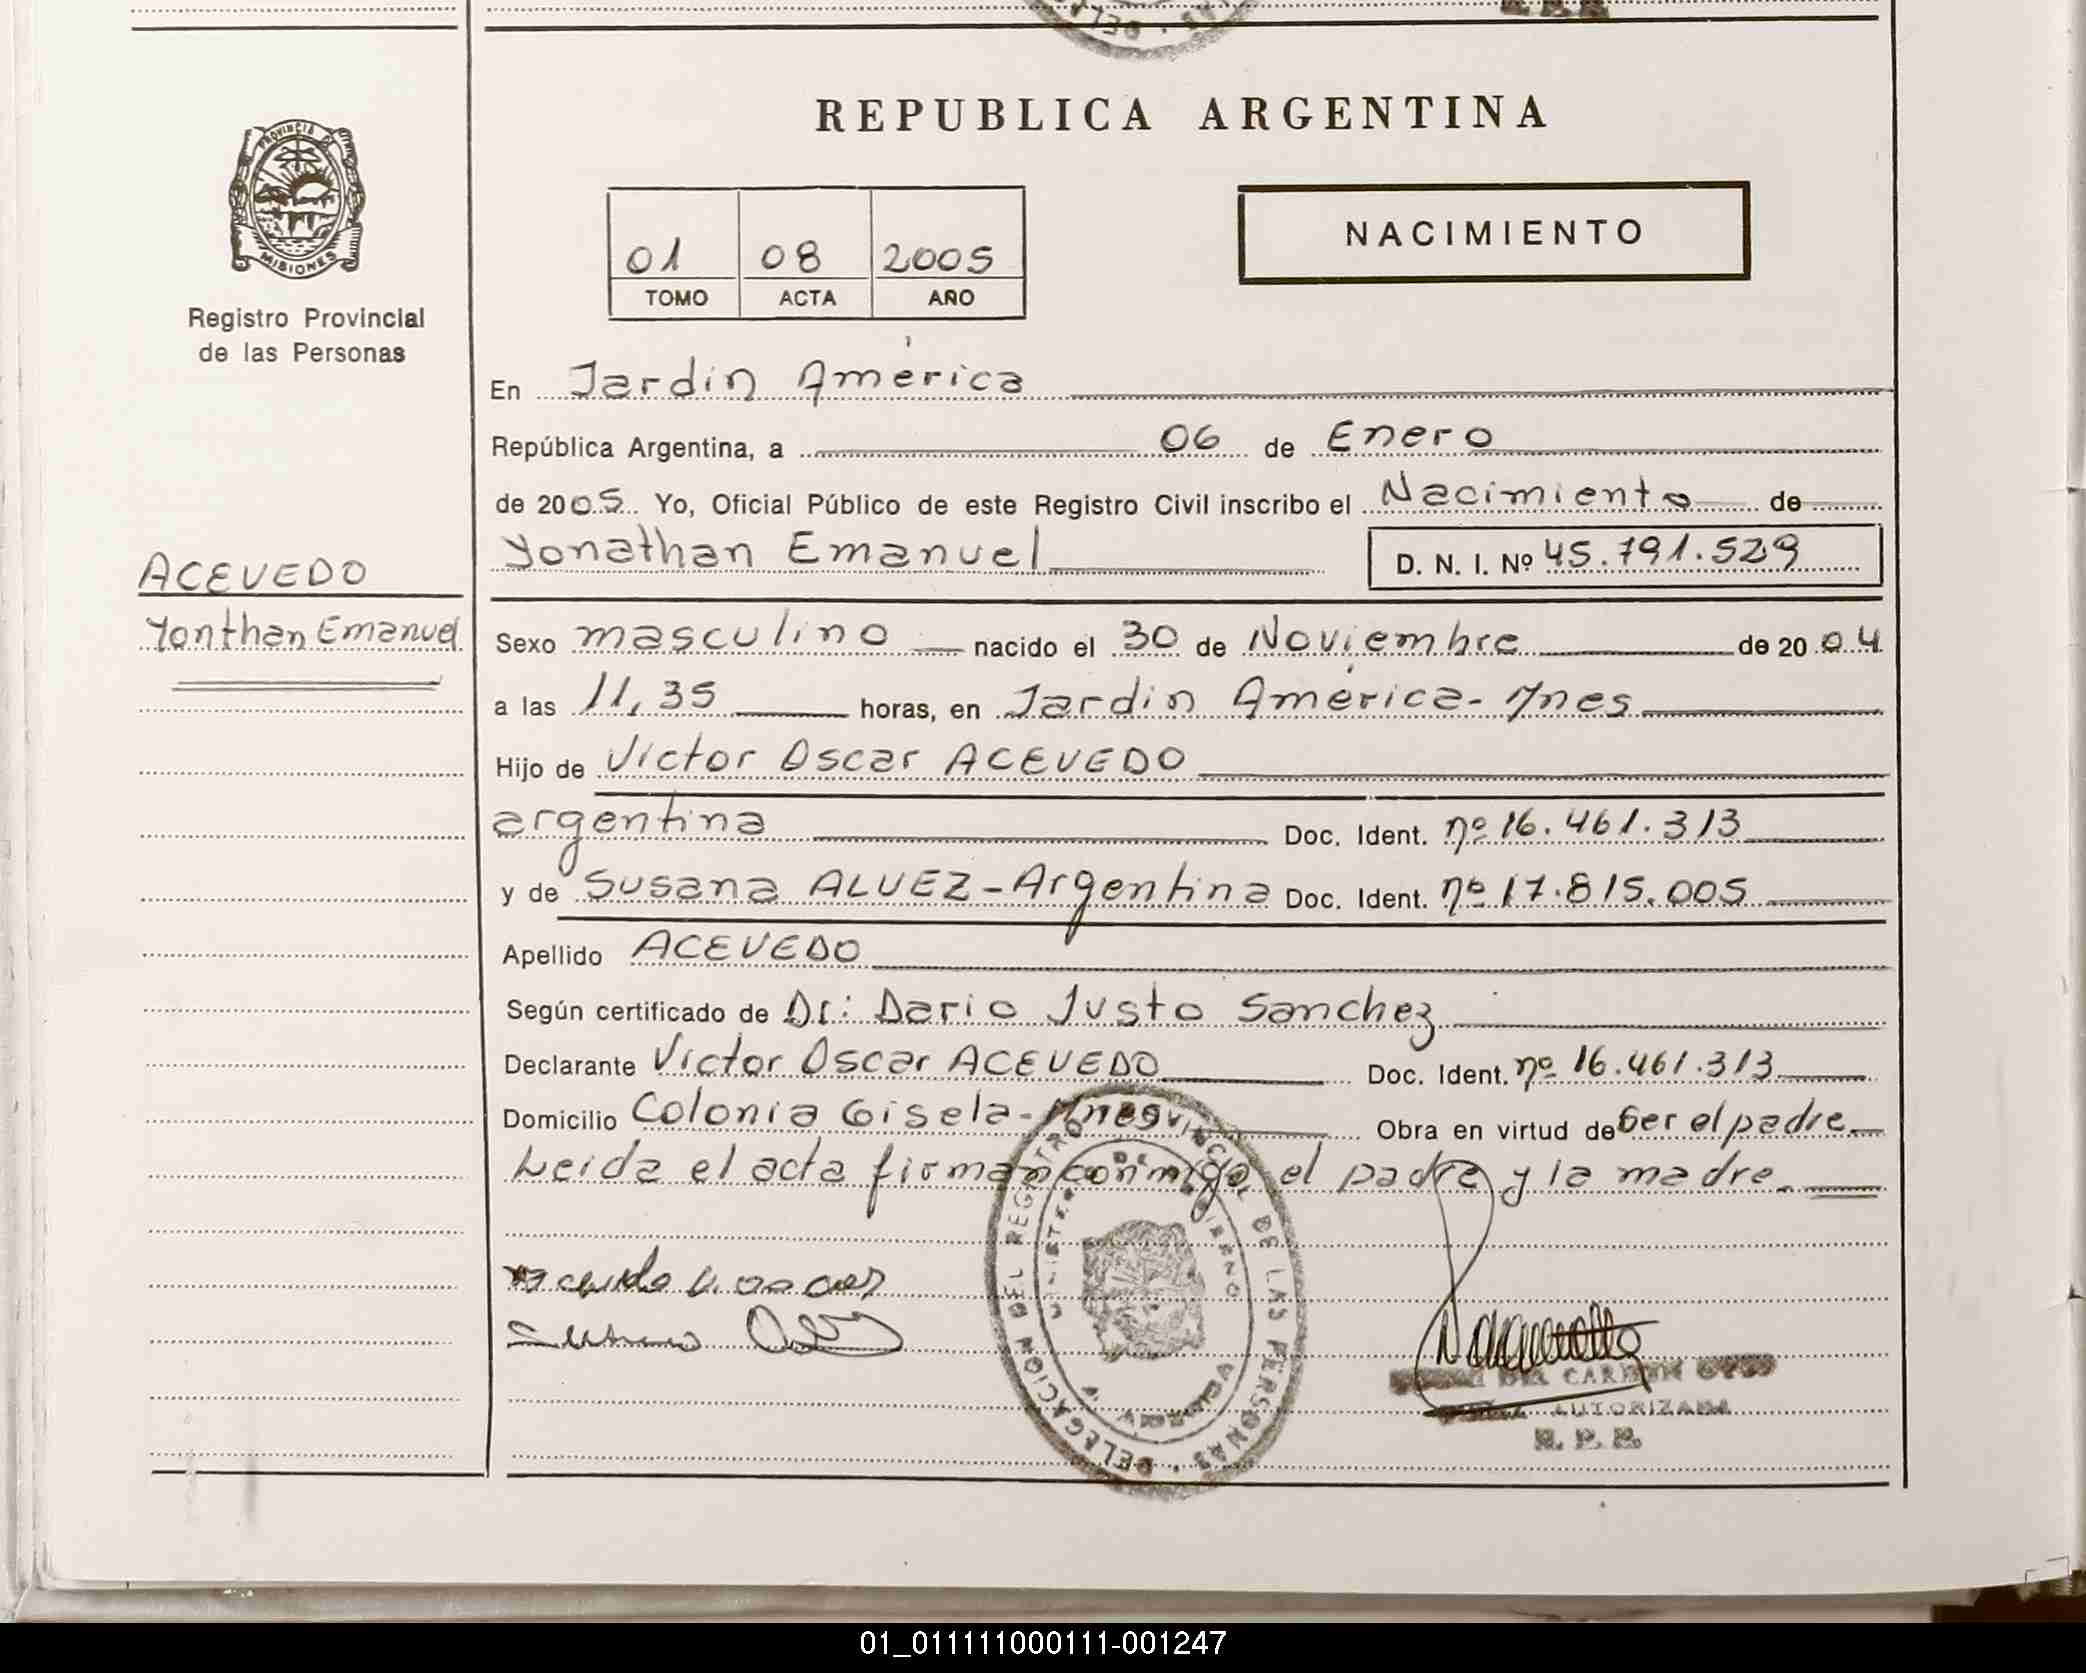 REPUBLICA ARGENTINA
PROVINCIA DE
MISIONES
Registro Provincial
de las Personas
01 08 2005
TOMO ACTA AÑO
NACIMIENTO
En Jardin América
República Argentina, a 06 de Enero
de 2005 Yo, Oficial Público de este Registro Civil inscribo el Nacimiento de
Yonathan Emanuel D. N. I. Nº 45.791.529
ACEVEDO
Yonthan Emanuel
Sexo masculino nacido el 30 de Noviembre de 2004
a las 11,35 horas, en Jardin América - Mnes
Hijo de Victor Oscar ACEVEDO
argentina Doc. Ident. nº 16.461.313
y de Susana ALVEZ - Argentina Doc. Ident. nº 17.815.005
Apellido ACEVEDO
Según certificado de Dr: Dario Justo Sanchez
Declarante Victor Oscar ACEVEDO Doc. Ident. nº 16.461.313
Domicilio Colonia Gisela - Mnes Obra en virtud de Ser el padre
Leida el acta firman conmigo el padre y la madre.
DELEGACION DEL REGISTRO PROVINCIAL DE LAS PERSONAS
DEL CARMEN
AUTORIZADA
R. P. P.
01_011111000111-001247